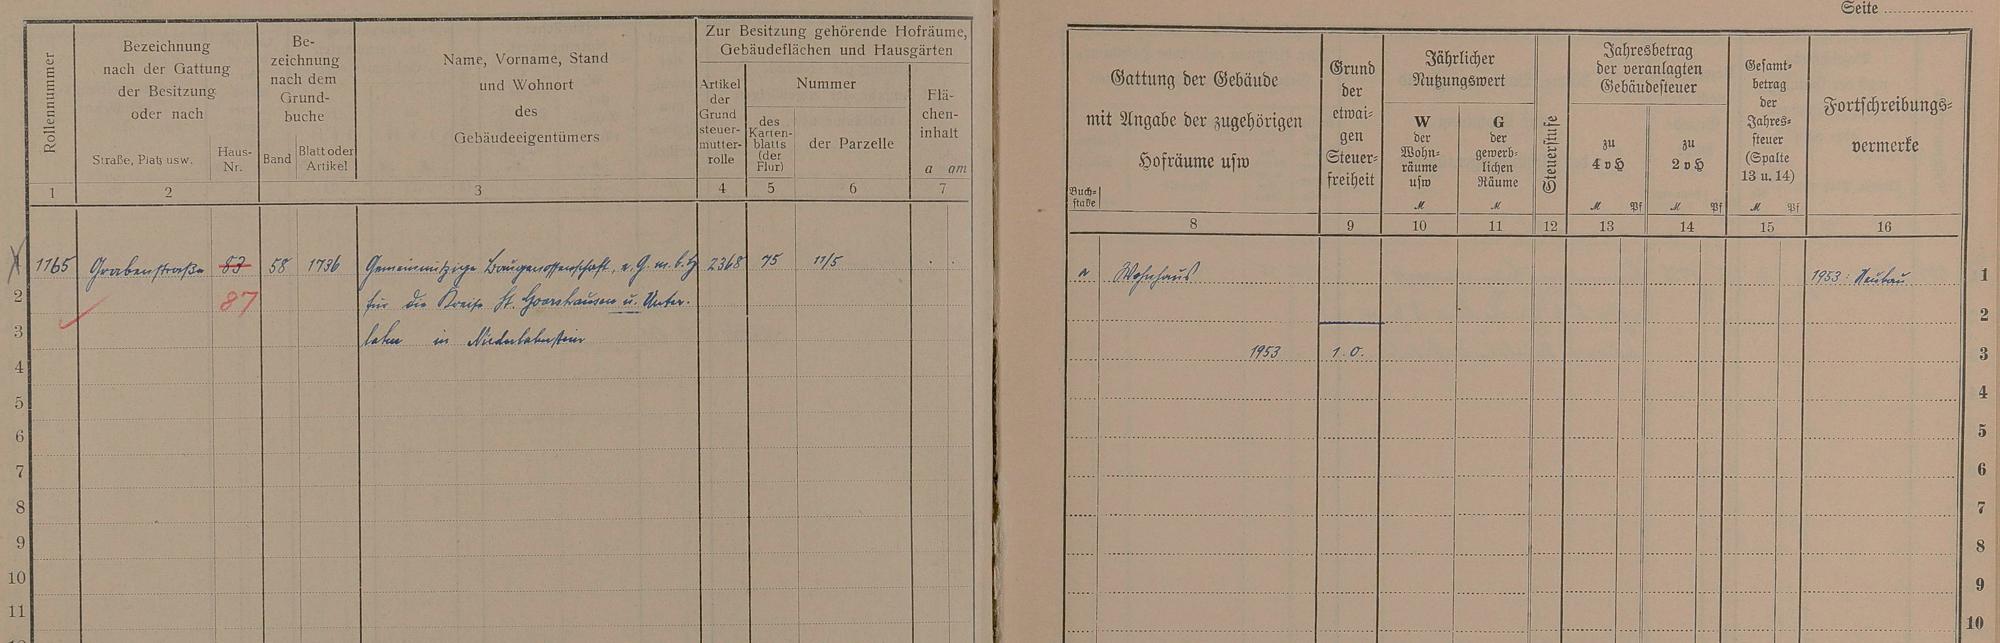 Seite
Rollennummer
Bezeichnung
nach der Gattung
der Besitzung
oder nach
Straße, Platz usw.
Haus-
Nr.
Be-
zeichnung
nach dem
Grund-
buche
Band
Blatt oder
Artikel
Name, Vorname, Stand
und Wohnort
des
Gebäudeeigentümers
Zur Besitzung gehörende Hofräume,
Gebäudeflächen und Hausgärten
Artikel
der
Grund
steuer-
mutter-
rolle
Nummer
des
Karten-
blatts
(der
Flur)
der Parzelle
Flä-
chen-
inhalt
a qm
1 2 3 4 5 6 7
1165 Grabenstraße 83 58 1736 Gemeinnützige Baugenossenschaft, e. G. m. b. H 2368 75 11/5
87 für die Kreise St. Goarshausen u. Unter-
lahn in Niederlahnstein
2
3
4
5
6
7
8
9
10
11
Buch-
stabe
Gattung der Gebäude
mit Angabe der zugehörigen
Hofräume usw
Grund
der
etwai-
gen
Steuer-
freiheit
Jährlicher
Nutzungswert
W
der
Wohn-
räume
usw
M
G
der
gewerb-
lichen
Räume
M
Steuerstufe
Jahresbetrag
der veranlagten
Gebäudesteuer
zu
4 v H
M Pf
zu
2 v H
M Pf
Gesamt-
betrag
der
Jahres-
steuer
(Spalte
13 u. 14)
M Pf
Fortschreibungs-
vermerke
8 9 10 11 12 13 14 15 16
a Wohnhaus 1953: Neubau 1
2
1953 1. 0. 3
4
5
6
7
8
9
10